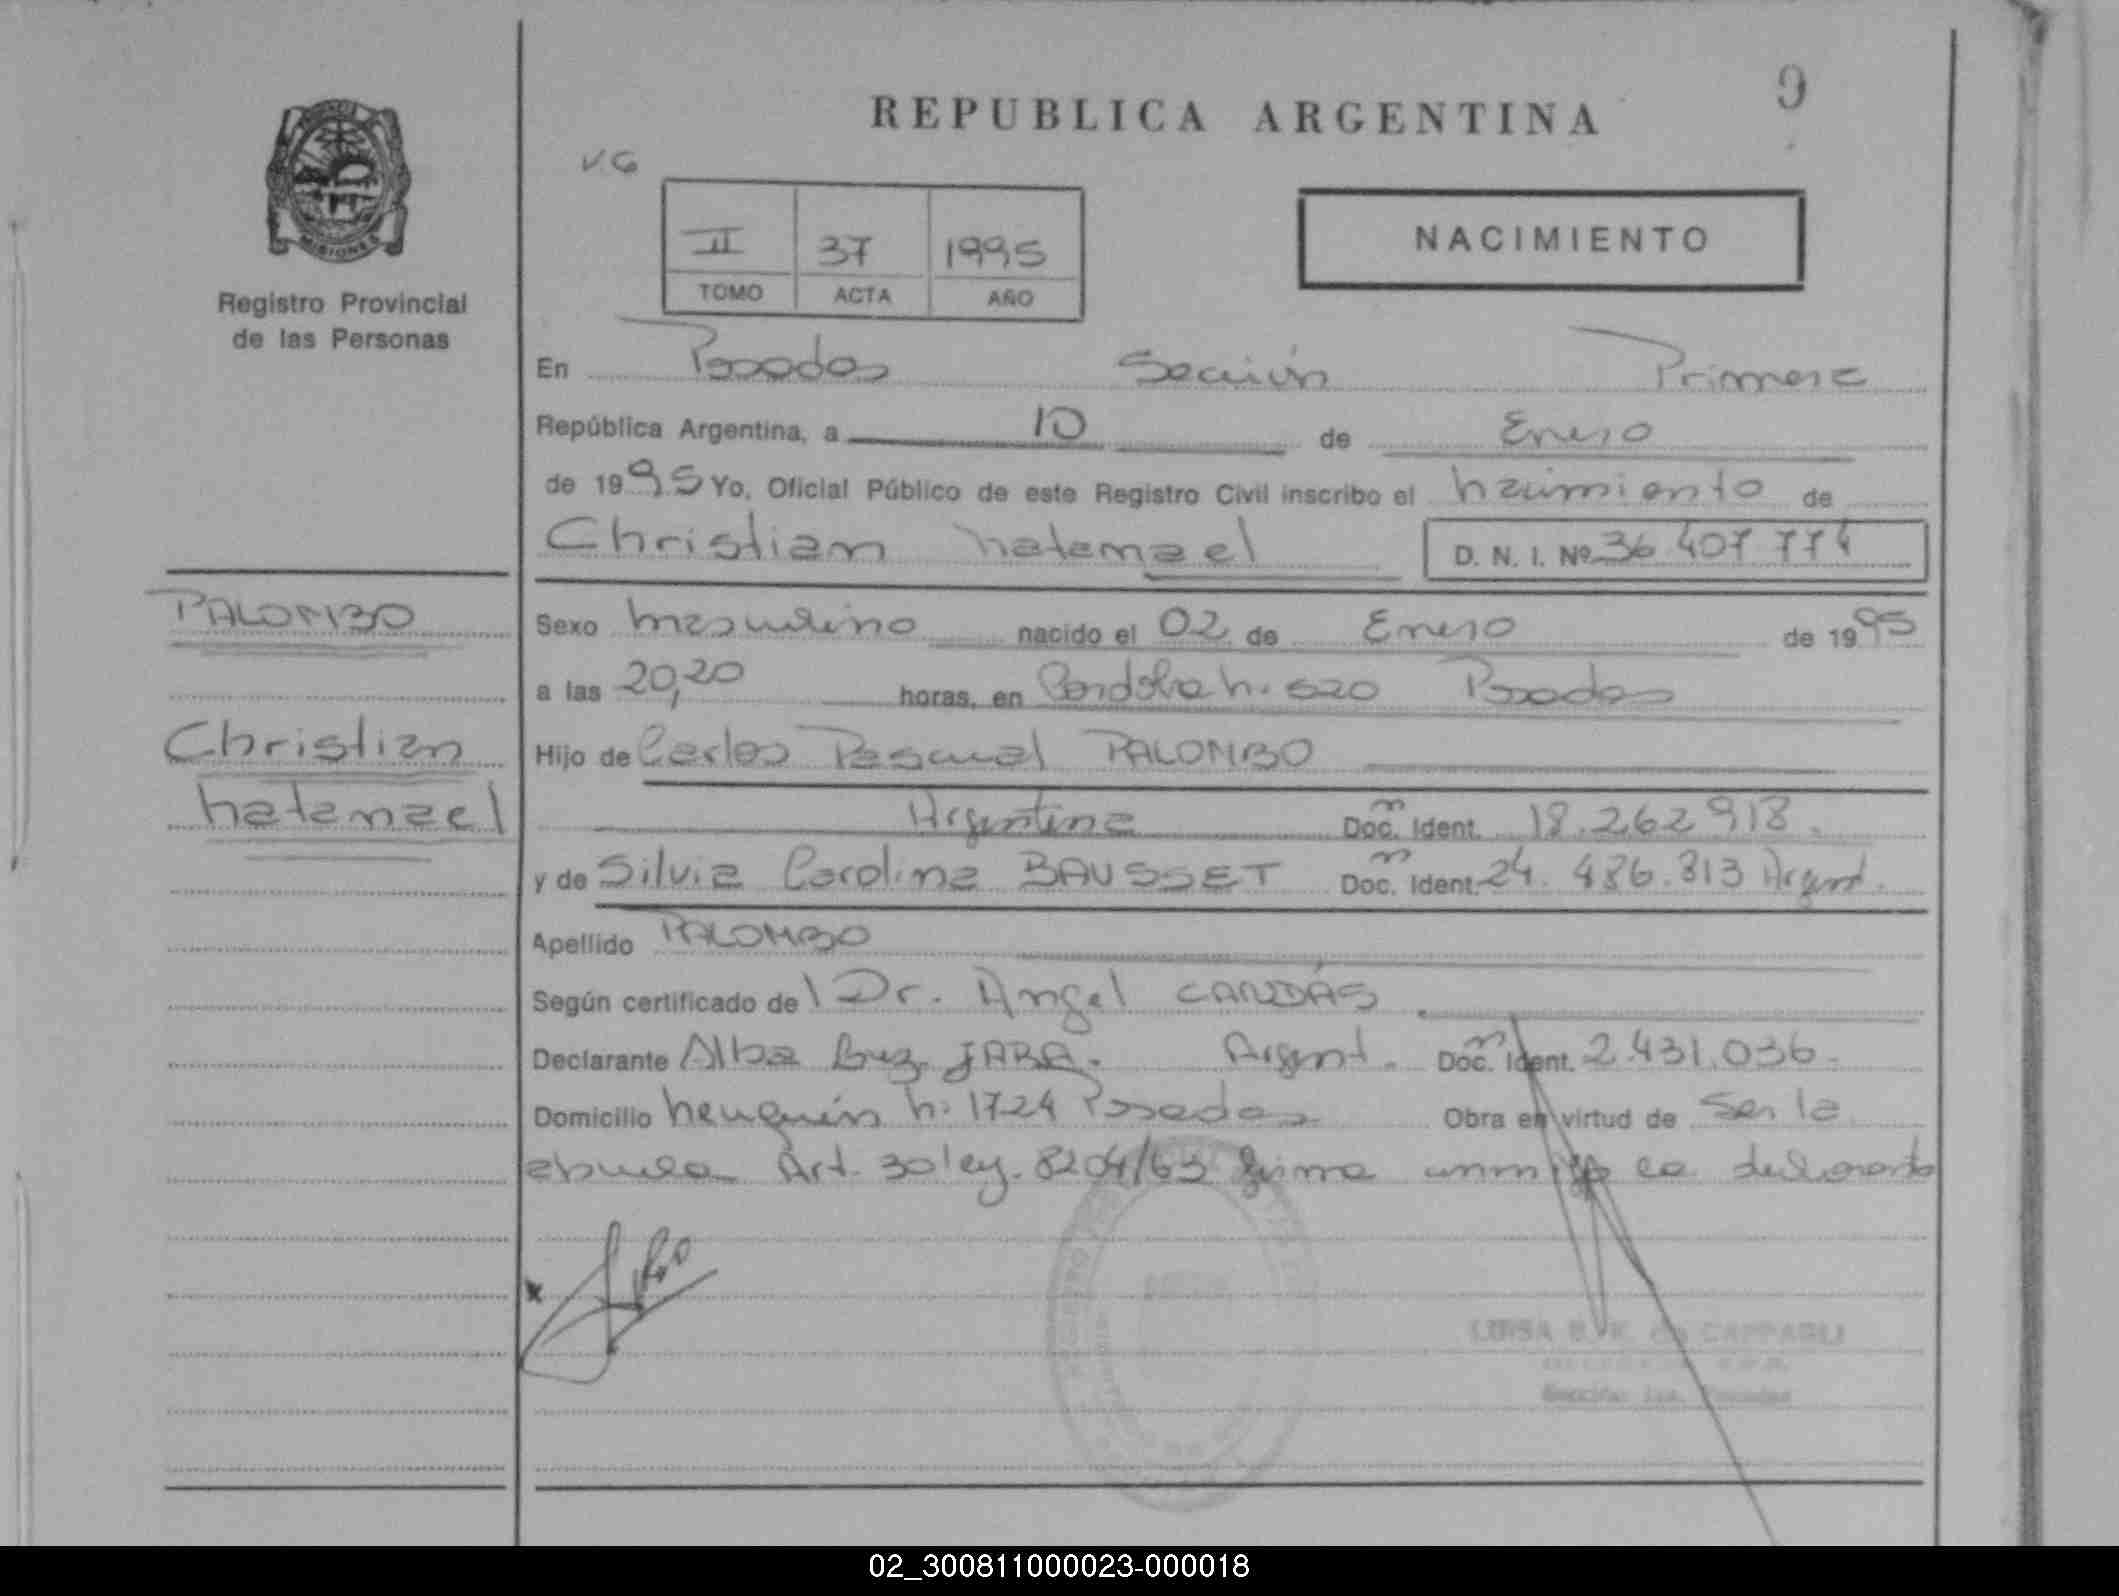 9
REPUBLICA ARGENTINA
V.G
II 37 1995
TOMO ACTA AÑO
NACIMIENTO
MISIONES
Registro Provincial
de las Personas
En Posadas Sección Primera
República Argentina, a 10 de Enero
de 1995 Yo, Oficial Público de este Registro Civil inscribo el nacimiento de
Christian Natanael D. N. I. Nº 36 407 774
PALOMBO
Christian
Natanael
Sexo Masculino nacido el 02 de Enero de 1995
a las 20,20 horas, en Cordoba N. 520 Posadas
Hijo de Carlos Pascual PALOMBO
Argentina Doc. Ident. 18.262918.
y de Silvia Carolina BAUSSET Doc. Ident. 24.486.813 Argent.
Apellido PALOMBO
Según certificado del Dr. Angel CANDÁS
Declarante Alba Luz JARA. Argent. Doc. Ident. 2.431.036.
Domicilio Neuquén N. 1724 Posadas Obra en virtud de Ser la
abuela Art. 30 ley. 8204/63 firma conmigo la declarante
x
LUISA B. K. de CAPPAGLI
Sección 1ra. Posadas
02_300811000023-000018